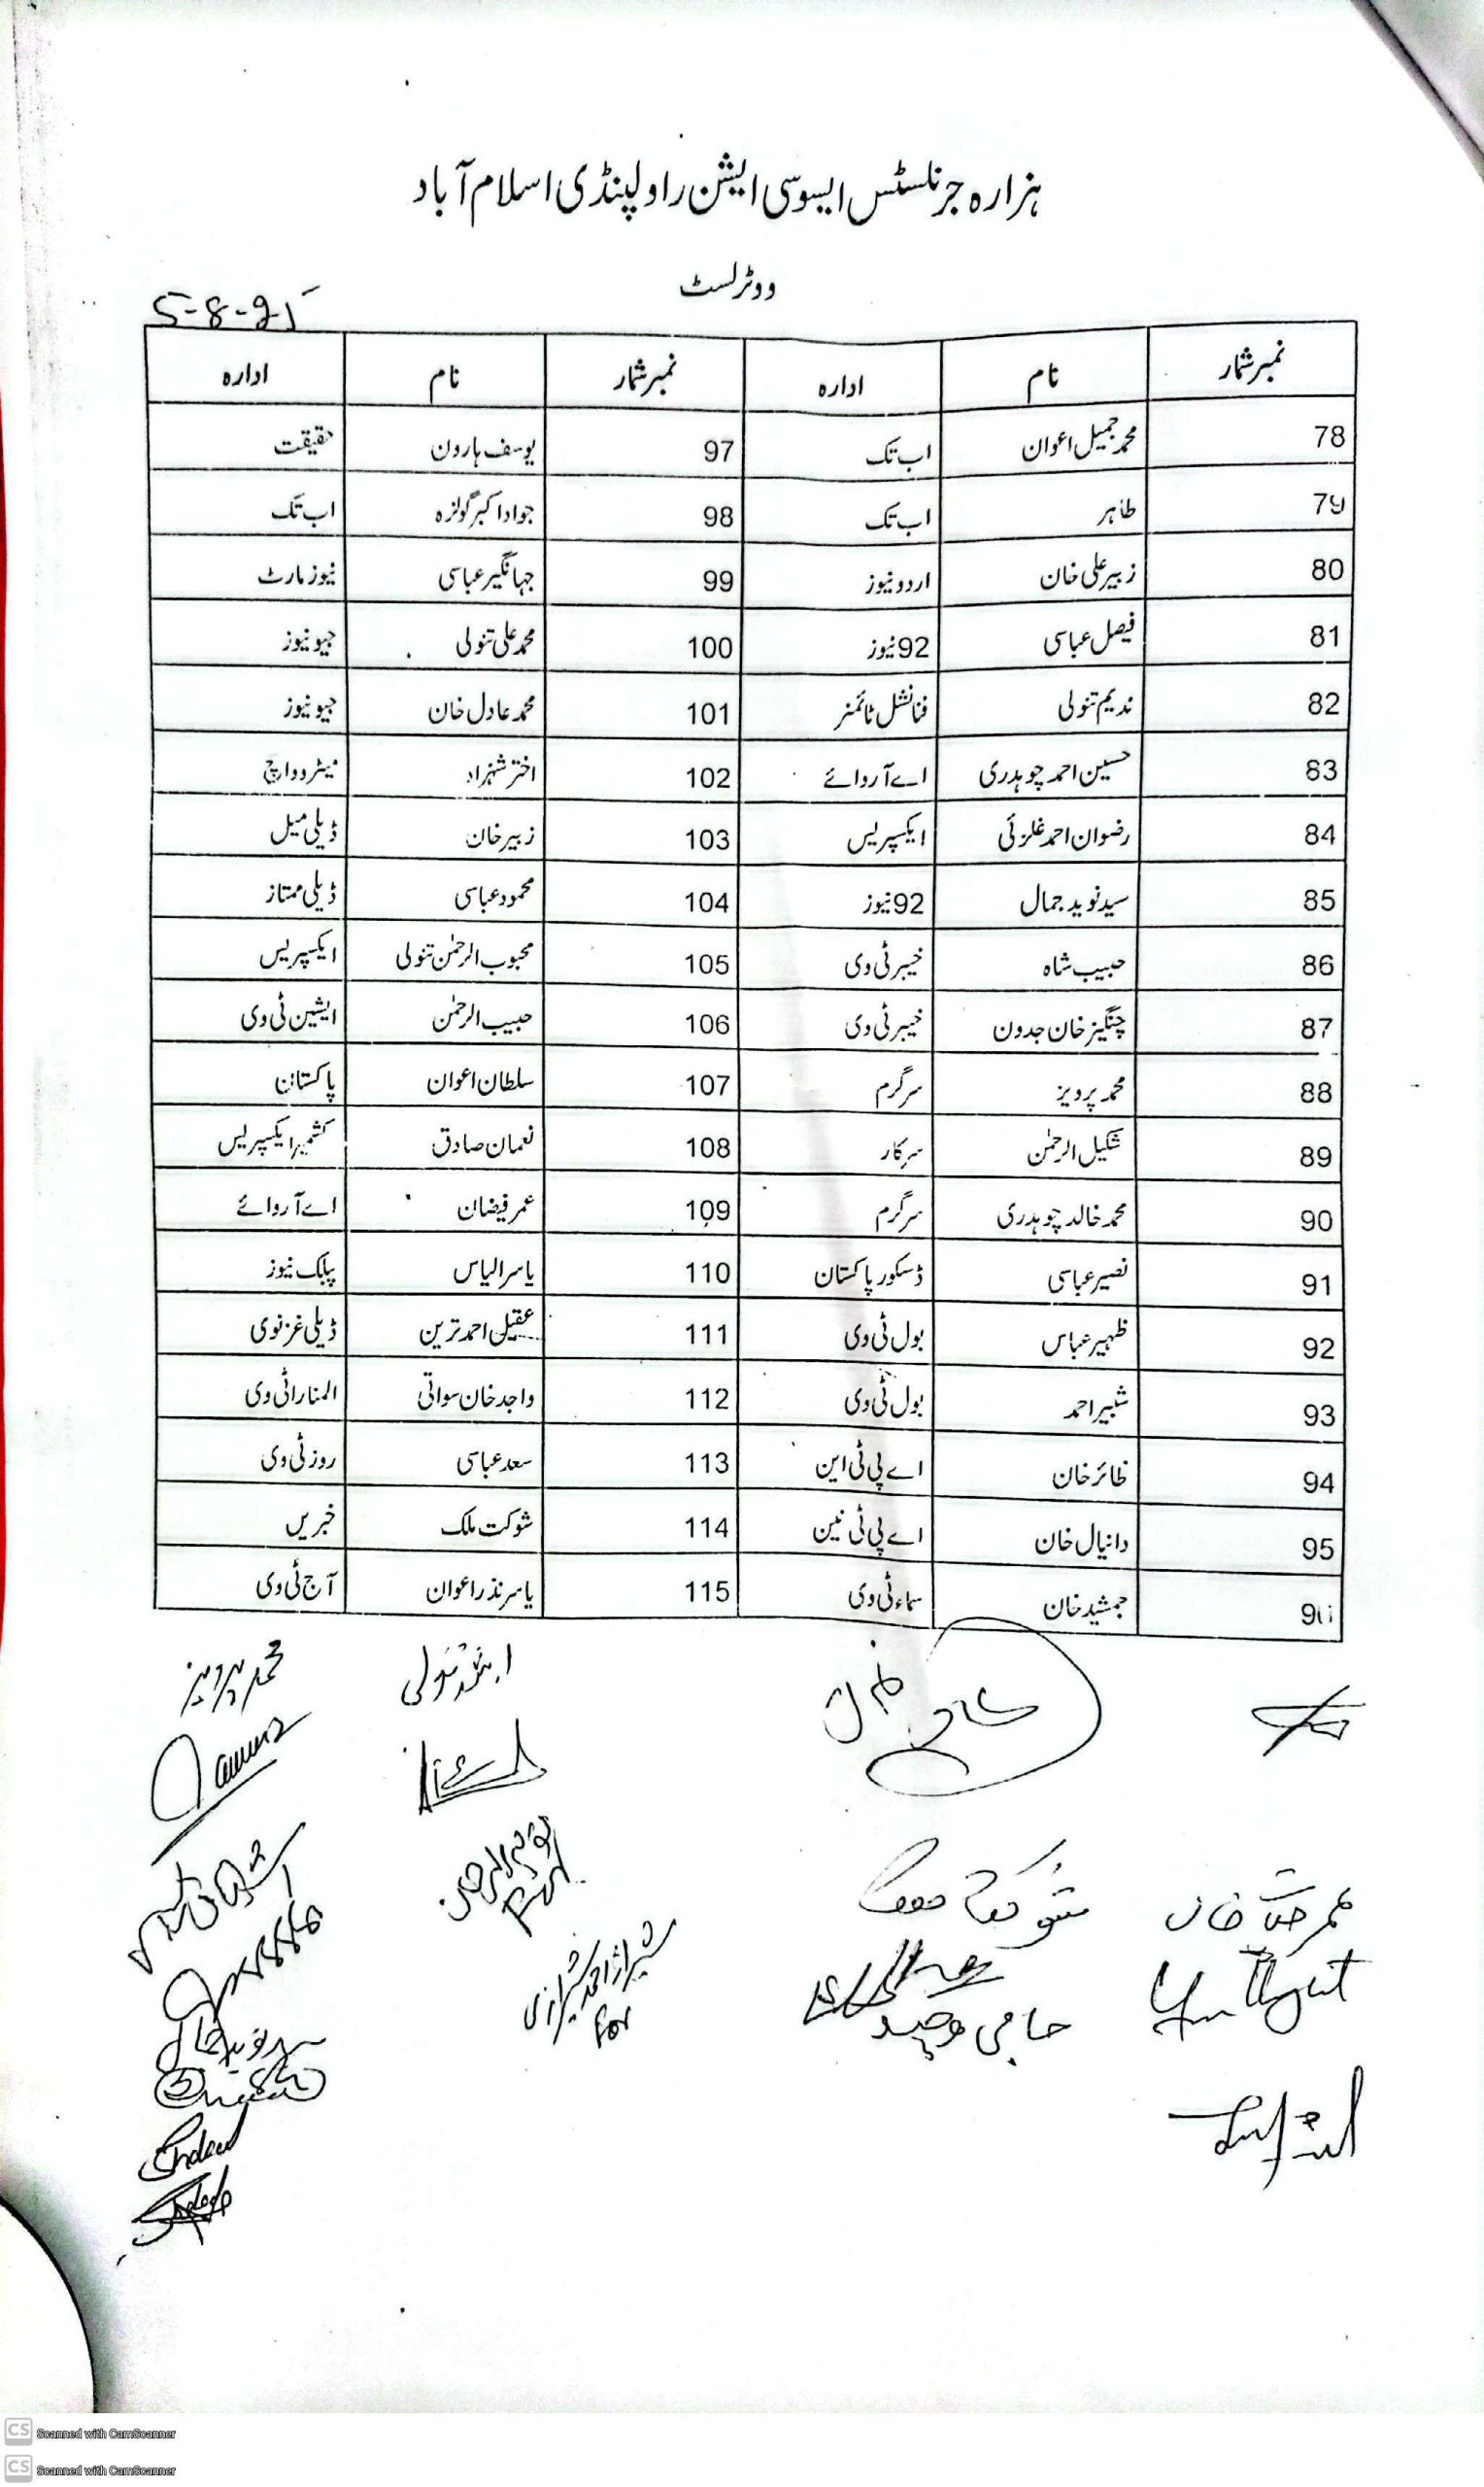 ہزارہ جرنلسٹس ایسوسی ایشن راولپنڈی اسلام آباد
ووٹرلسٹ
5-8-21
نمبرشمار نام ادارہ نمبرشمار نام ادارہ
78 محمد جمیل اعوان اب تک 97 یوسف ہارون حقیقت
79 طاہر اب تک 98 جواد اکبر گولڑہ اب تک
80 زبیر علی خان اردو نیوز 99 جہانگیر عباسی نیوز مارٹ
81 فیصل عباسی 92 نیوز 100 محمد علی تنولی جیو نیوز
82 ندیم تنولی فنانشل ٹائمنر 101 محمد عادل خان جیو نیوز
83 حسین احمد چوہدری اے آر وائے 102 اختر شہزاد میٹرو واچ
84 رضوان احمد غلزئی ایکسپریس 103 زبیر خان ڈیلی میل
85 سید نوید جمال 92 نیوز 104 محمود عباسی ڈیلی ممتاز
86 حبیب شاہ خیبر ٹی وی 105 محبوب الرحمٰن تنولی ایکسپریس
87 چنگیز خان جدون خیبر ٹی وی 106 حبیب الرحمٰن ایشین ٹی وی
88 محمد پرویز سرگرم 107 سلطان اعوان پاکستان
89 شکیل الرحمٰن سرکار 108 نعمان صادق کشمیر ایکسپریس
90 محمد خالد چوہدری سرگرم 109 عمر فیضان اے آر وائے
91 نصیر عباسی ڈسکور پاکستان 110 یاسر الیاس پبلک نیوز
92 ظہیر عباس بول ٹی وی 111 عقیل احمد ترین ڈیلی غزنوی
93 شبیر احمد بول ٹی وی 112 واجد خان سواتی المنارا ٹی وی
94 طائر خان اے پی ٹی این 113 سعد عباسی روز ٹی وی
95 دانیال خان اے پی ٹی نین 114 شوکت ملک خبریں
96 جمشید خان سماء ٹی وی 115 یاسر نذر اعوان آج ٹی وی
محمد پرویز
عمر حیات خان
شیراز احمد شیرازی
For
حاجی وحید
CS Scanned with CamScanner
CS Scanned with CamScanner